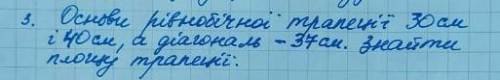 3. Основи рівнобічної трапеції 30 см
і 40 см, а діагональ - 37 см. Знайти
площу трапеції.